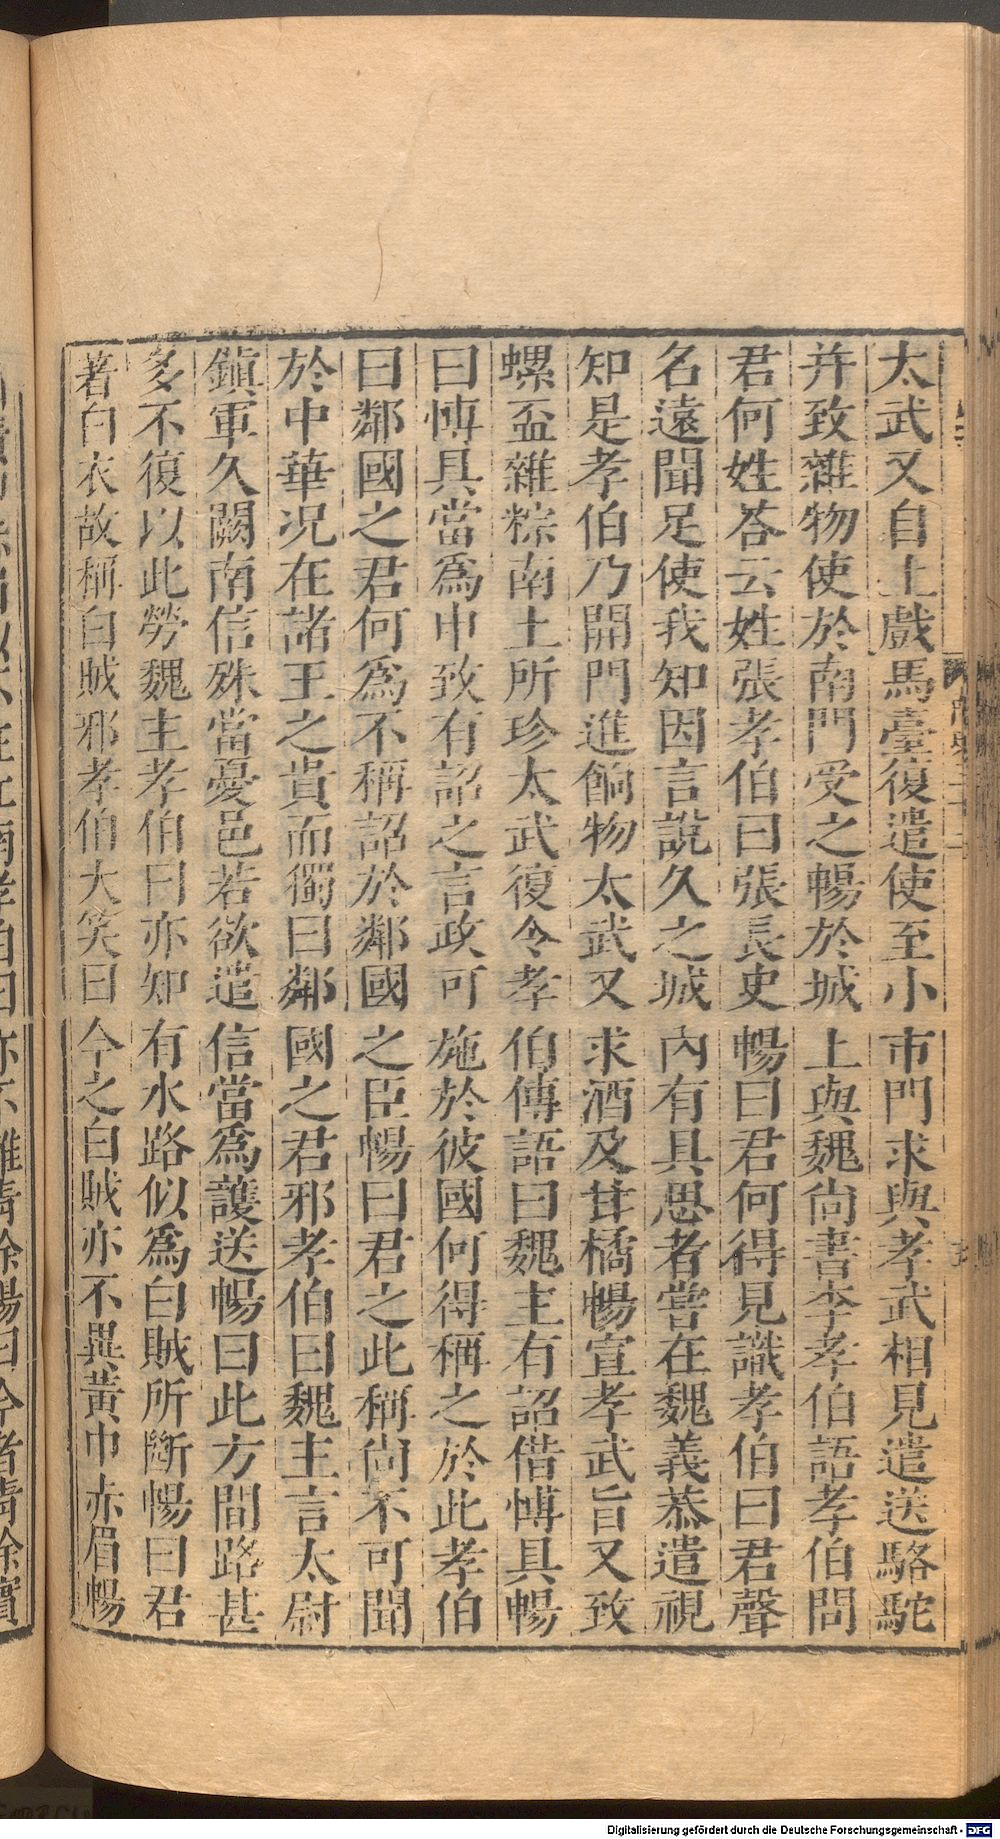 太武又自上戲馬臺復遣使至小市門求與孝武相見遣送駱駝
并致雜物使於南門受之暢於城上與魏尚書李孝伯語孝伯問
君何姓荅云姓張孝伯曰張長史暢曰君何得見識孝伯曰君聲
名遠聞足使我知因言說久之城內有具思者嘗在魏義恭遣視
知是孝伯乃開門進餉物太武又求酒及甘橘暢宣孝武旨又致
螺盃雜粽南土所珍太武復令孝伯傳語曰魏主有詔借博具暢
曰博具當爲申致有詔之言政可施於彼國何得稱之於此孝伯
曰鄰國之君何爲不稱詔於鄰國之臣暢曰君之此稱尚不可聞
於中華况在諸王之貴而獨曰鄰國之君邪孝伯曰魏主言太尉
鎭軍久闕南信殊當憂邑若欲遣信當爲護送暢曰此方間路甚
多不復以此勞魏主孝伯曰亦知有水路似爲白賊所斷暢曰君
著白衣故稱白賊邪孝伯大笑曰今之白賊亦不異黃巾赤眉暢
Digitalisierung gefördert durch die Deutsche Forschungsgemeinschaft - DFG